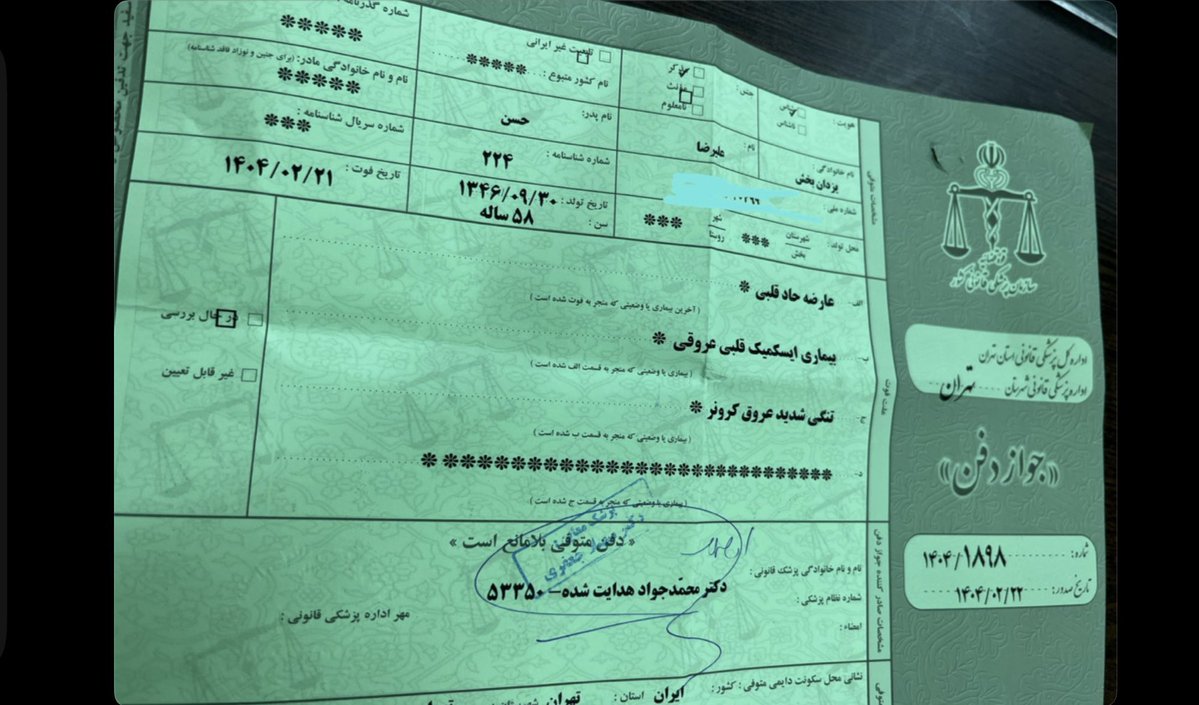 قوه قضاییه
سازمان پزشکی قانونی کشور
اداره کل پزشکی قانونی استان تهران
اداره پزشکی قانونی شهرستان تهران
«جواز دفن»
شماره: ۱۴۰۴/۱۸۹۸
تاریخ صدور: ۱۴۰۴/۰۲/۲۲
مشخصات متوفی
هویت: شناس ناشناس
جنس: مذکر مونث نامعلوم
تابعیت غیر ایرانی
نام کشور متبوع: *****
شماره گذرنامه
*****
نام خانوادگی: یزدان بخش
نام: علیرضا
نام پدر: حسن
نام و نام خانوادگی مادر: (برای جنین و نوزاد فاقد شناسنامه)
*****
شماره ملی:
شماره شناسنامه: ۲۲۴
شماره سریال شناسنامه:
***
محل تولد: شهرستان بخش *** شهر روستا ***
تاریخ تولد: ۱۳۴۶/۰۹/۳۰
سن: ۵۸ ساله
تاریخ فوت: ۱۴۰۴/۰۲/۲۱
علت فوت
الف- عارضه حاد قلبی *
(آخرین بیماری یا وضعیتی که منجر به فوت شده است)
ب- بیماری ایسکمیک قلبی عروقی *
(بیماری یا وضعیتی که منجر به قسمت الف شده است)
ج- تنگی شدید عروق کرونر *
(بیماری یا وضعیتی که منجر به قسمت ب شده است)
د-
(بیماری یا وضعیتی که منجر به قسمت ج شده است)
در حال بررسی
غیر قابل تعیین
مشخصات صادر کننده جواز دفن
« دفن متوفی بلامانع است »
نام و نام خانوادگی پزشک قانونی:
دکتر محمدجواد هدایت شده - ۵۳۳۵۰
شماره نظام پزشکی:
امضاء:
مهر اداره پزشکی قانونی:
نشانی محل سکونت دایمی متوفی: کشور: ایران استان: تهران